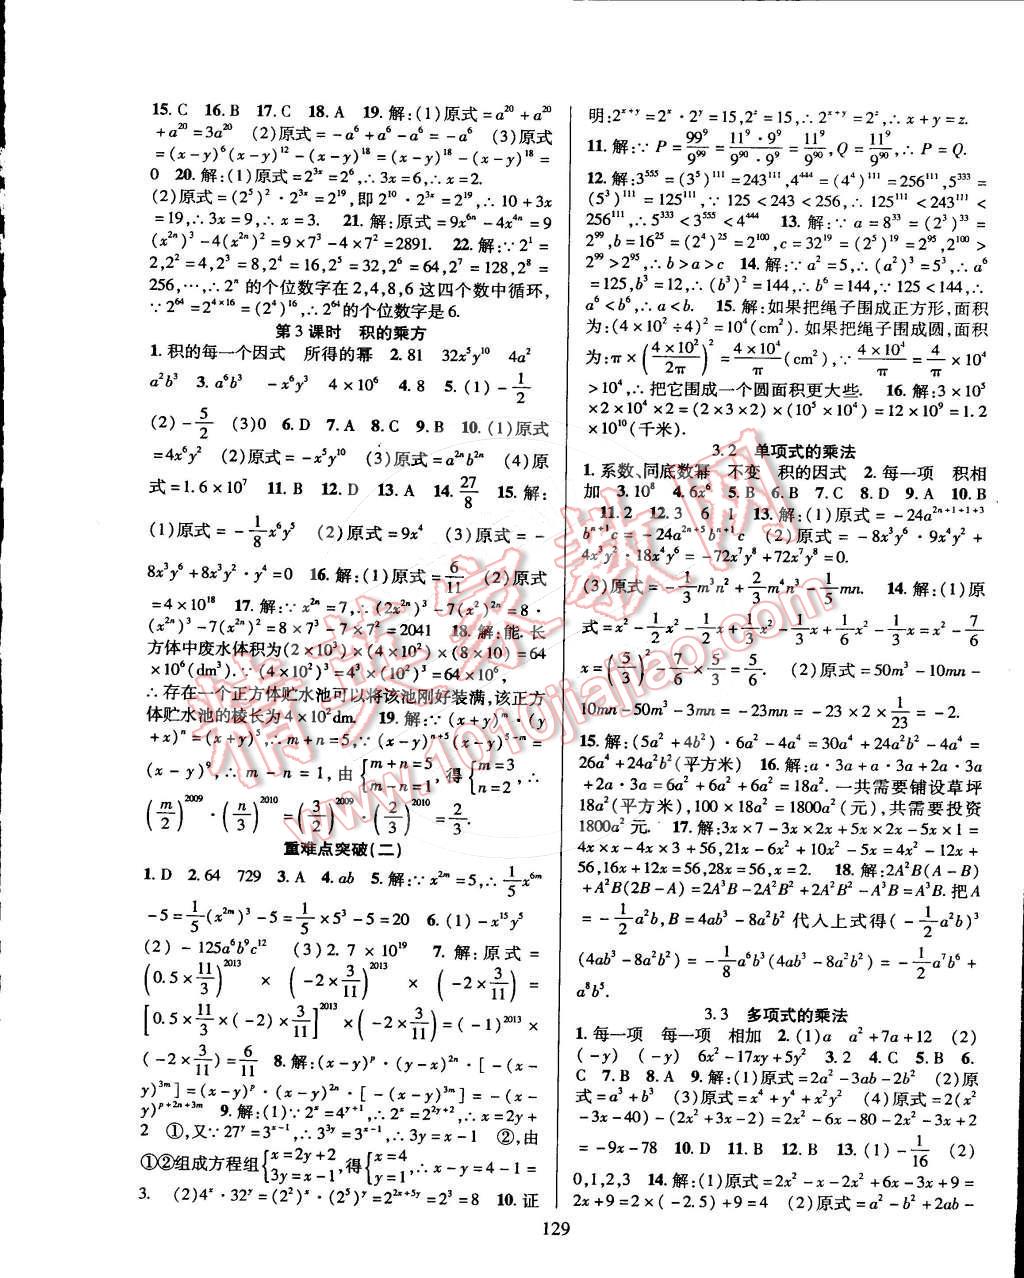 15. C 16. B 17. C 18. A 19. 解:(1)原式=a²⁰+a²⁰
+a²⁰=3a²⁰ (2)原式=-a⁶+a⁶-a⁶=-a⁶ (3)原式
=(x-y)⁶(x-y)¹²-(x-y)¹⁸=(x-y)¹⁸-(x-y)¹⁸=
0 20. 解:(1)原式=2³ˣ=2⁶,∴3x=6,∴x=2.
(2)原式=(2⁵)²·2³ˣ=2¹⁹,即2¹⁰·2³ˣ=2¹⁹,∴10+3x
=19,∴3x=9,∴x=3. 21. 解:原式=9x⁶ⁿ-4x⁴ⁿ=9
(x²ⁿ)³-4(x²ⁿ)²=9×7³-4×7²=2891. 22. 解:∵2¹=
2,2²=4,2³=8,2⁴=16,2⁵=32,2⁶=64,2⁷=128,2⁸=
256,…,∴2ⁿ的个位数字在2,4,8,6这四个数中循环,
∵2⁶⁴=2⁴ˣ¹⁶=(2⁴)¹⁶,∴2⁶⁴的个位数字是6.
第3课时 积的乘方
1. 积的每一个因式 所得的幂 2. 81 32x⁵y¹⁰ 4a²
a²b³ 3. a⁶b³ -x⁶y³ 4×10⁶ 4. 8 5. (1)-1/2
(2)-5/2 (3)0 6. D 7. A 8. C 9. B 10. (1)原式
=4x⁶y² (2)原式=-x⁵y¹⁰ (3)原式=a²ⁿb²ⁿ (4)原
式=1.6×10⁷ 11. B 12. D 13. A 14. 27/8 15. 解:
(1)原式=-1/8x⁶y⁵ (2)原式=9x⁴ (3)原式=-
8x³y⁶+8x³y²·y⁴=0 16. 解:(1)原式=6/11 (2)原式
=4×10¹⁸ 17. 解:∵x²ⁿ=7,∴(2x²ⁿ)³-7(x²)²ⁿ=8·
(x²ⁿ)³-7(x²ⁿ)²=8×7³-7×7²=2041 18. 解:能. 长
方体中废水体积为(2×10³)×(4×10²)×(8×10)=64
×10⁶(dm³).∵4³×(10²)³=64×10⁶,
∴存在一个正方体贮水池可以将该池刚好装满,该正方
体贮水池的棱长为4×10²dm. 19. 解:∵(x+y)ᵐ·(y
+x)ⁿ=(x+y)⁵,∴m+n=5,∵(x-y)ⁿ⁺⁵(x-y)⁵⁻ᵐ=
(x-y)⁹,∴m-n=1,由{m+n=5 m-n=1,得{m=3 n=2,∴
(m/2)²⁰⁰⁹·(n/3)²⁰¹⁰=(3/2)²⁰⁰⁹×(2/3)²⁰¹⁰=2/3.
重难点突破(二)
1. D 2. 64 729 3. A 4. ab 5. 解:∵x²ᵐ=5,∴1/5x⁶ᵐ
-5=1/5(x²ᵐ)³-5=1/5×5³-5=20 6. (1)-x¹⁵y⁵
(2)-125a⁶b⁹c¹² (3)2.7×10¹⁹ 7. 解:原式=
(0.5×11/3)²⁰¹³×(-2×3/11)²⁰¹³×(-2×3/11)=
[0.5×11/3×(-2)×3/11]²⁰¹³×(-2×3/11)=(-1)²⁰¹³×
(-2×3/11)=6/11 8. 解:(x-y)ᵖ·(y-x)²ⁿ·[-(x-
y)³ᵐ]=(x-y)ᵖ·(x-y)²ⁿ·[-(x-y)³ᵐ]=-(x-
y)ᵖ⁺²ⁿ⁺³ᵐ 9. 解:(1)∵2ˣ=4ʸ⁺¹,∴2ˣ=2²ʸ⁺²,∴x=2y+
2 ①,又∵27ʸ=3ˣ⁻¹,∴3³ʸ=3ˣ⁻¹,∴3y=x-1 ②,由
①②组成方程组{x=2y+2 3y=x-1,得{x=4 y=1,∴x-y=4-1=
3. (2)4ˣ·32ʸ=(2²)ˣ·(2⁵)ʸ=2²ˣ⁺⁵ʸ=2³=8 10. 证
明:2ˣ⁺ʸ=2ˣ·2ʸ=15,2ᶻ=15,∴2ˣ⁺ʸ=2ᶻ,∴x+y=z.
11. 解:∵P=99⁹/9⁹⁹=11⁹·9⁹/9⁹⁰·9⁹=11⁹/9⁹⁰,Q=11⁹/9⁹⁰,∴P=Q.
12. 解:3⁵⁵⁵=(3⁵)¹¹¹=243¹¹¹,4⁴⁴⁴=(4⁴)¹¹¹=256¹¹¹,5³³³=
(5³)¹¹¹=125¹¹¹,∵125<243<256,∴125¹¹¹<243¹¹¹<
256¹¹¹,∴5³³³<3⁵⁵⁵<4⁴⁴⁴ 13. 解:∵a=8³³=(2³)³³=
2⁹⁹,b=16²⁵=(2⁴)²⁵=2¹⁰⁰,c=32¹⁹=(2⁵)¹⁹=2⁹⁵,2¹⁰⁰>
2⁹⁹>2⁹⁵,∴b>a>c 14. 解:∵a²=5,∴(a²)³=5³,∴a⁶
=125,b³=12,∴(b³)²=144,∴b⁶=144,∵125<144,∴
a⁶<b⁶,∴a<b. 15. 解:如果把绳子围成正方形,面积
为:(4×10²÷4)²=10⁴(cm²).如果把绳子围成圆,面积
为:π×(4×10²/2π)²=4×10⁴/π(cm²),∵4×10⁴/π=4/π×10⁴
>10⁴,∴把它围成一个圆面积更大些. 16. 解:3×10⁵
×2×10⁴×2=(2×3×2)×(10⁵×10⁴)=12×10⁹=1.2
×10¹⁰(千米).
3.2 单项式的乘法
1. 系数、同底数幂 不变 积的因式 2. 每一项 积相
加 3. 10⁸ 4. 6x⁶ 5. B 6. B 7. C 8. D 9. A 10. B
11. 2 12. 3 6 1 13. 解:(1)原式=-24a²ⁿ⁺¹⁺¹⁺³
bⁿ⁺¹c=-24a²ⁿ⁺⁵bⁿ⁺¹c (2)原式=-8x³y⁶·9x⁴y²+
4x³y²·18x⁴y⁶=-72x⁷y⁸+72x⁷y⁸=0.
(3)原式=-1/3m³n²+2/3m⁴n³-1/5mn. 14. 解:(1)原
式=x²-1/2x²-1/2x+1/3x²-1/3x+1/6x²-1/3x=x²-7/6
x=(5/3)²-7/6×5/3=5/6. (2)原式=50m³-10mn-
10mn-50m³-3mn=-23mn=-23×2×1/23=-2.
15. 解:(5a²+4b²)·6a²-4a⁴=30a⁴+24a²b²-4a⁴=
26a⁴+24a²b²(平方米) 16. 解:a·3a+a·3a+2a·3a
+2a·3a=3a²+3a²+6a²+6a²=18a².一共需要铺设草坪
18a²(平方米),100×18a²=1800a²(元),共需要投资
1800a²元. 17. 解:3x×7-3x×2x+5x×2x-2x×5x×1=
4x×x-4x×3+56,15x+10x²-10x²=4x²-12x+
56,16x+12x=56,28x=56,x=2. 18. 解:2A²B(A-B)
+A²B(2B-A)=2A³B-2A²B²+2A²B²-A³B=A³B.把A
=-1/2a²b,B=4ab³-8a²b²代入上式得(-1/2a²b)³
(4ab³-8a²b²)=-1/8a⁶b³(4ab³-8a²b²)=-1/2a⁷b⁶+
a⁸b⁵.
3.3 多项式的乘法
1. 每一项 每一项 相加 2. (1)a a²+7a+12 (2)
(-y) (-y) 6x²-17xy+5y² 3. 2 4. C 5. B 6.
C 7. B 8. A 9. 解:(1)原式=2a²-3ab-2b² (2)原
式=a³+b³ (3)原式=x⁴+y⁴+x²y² (4)原式=2(x²
-3x-40)-(2x²+3x-2)=2x²-6x-80-2x²-3x+2
=-9x-78 10. D 11. B 12. B 13. (1)-1/16 (2)
0,1,2,3 14. 解:(1)原式=2x²-x-2x²+6x-3x+9=
2x+9=2×(-2.5)+9=4 (2)原式=a²-b²+2ab-
129